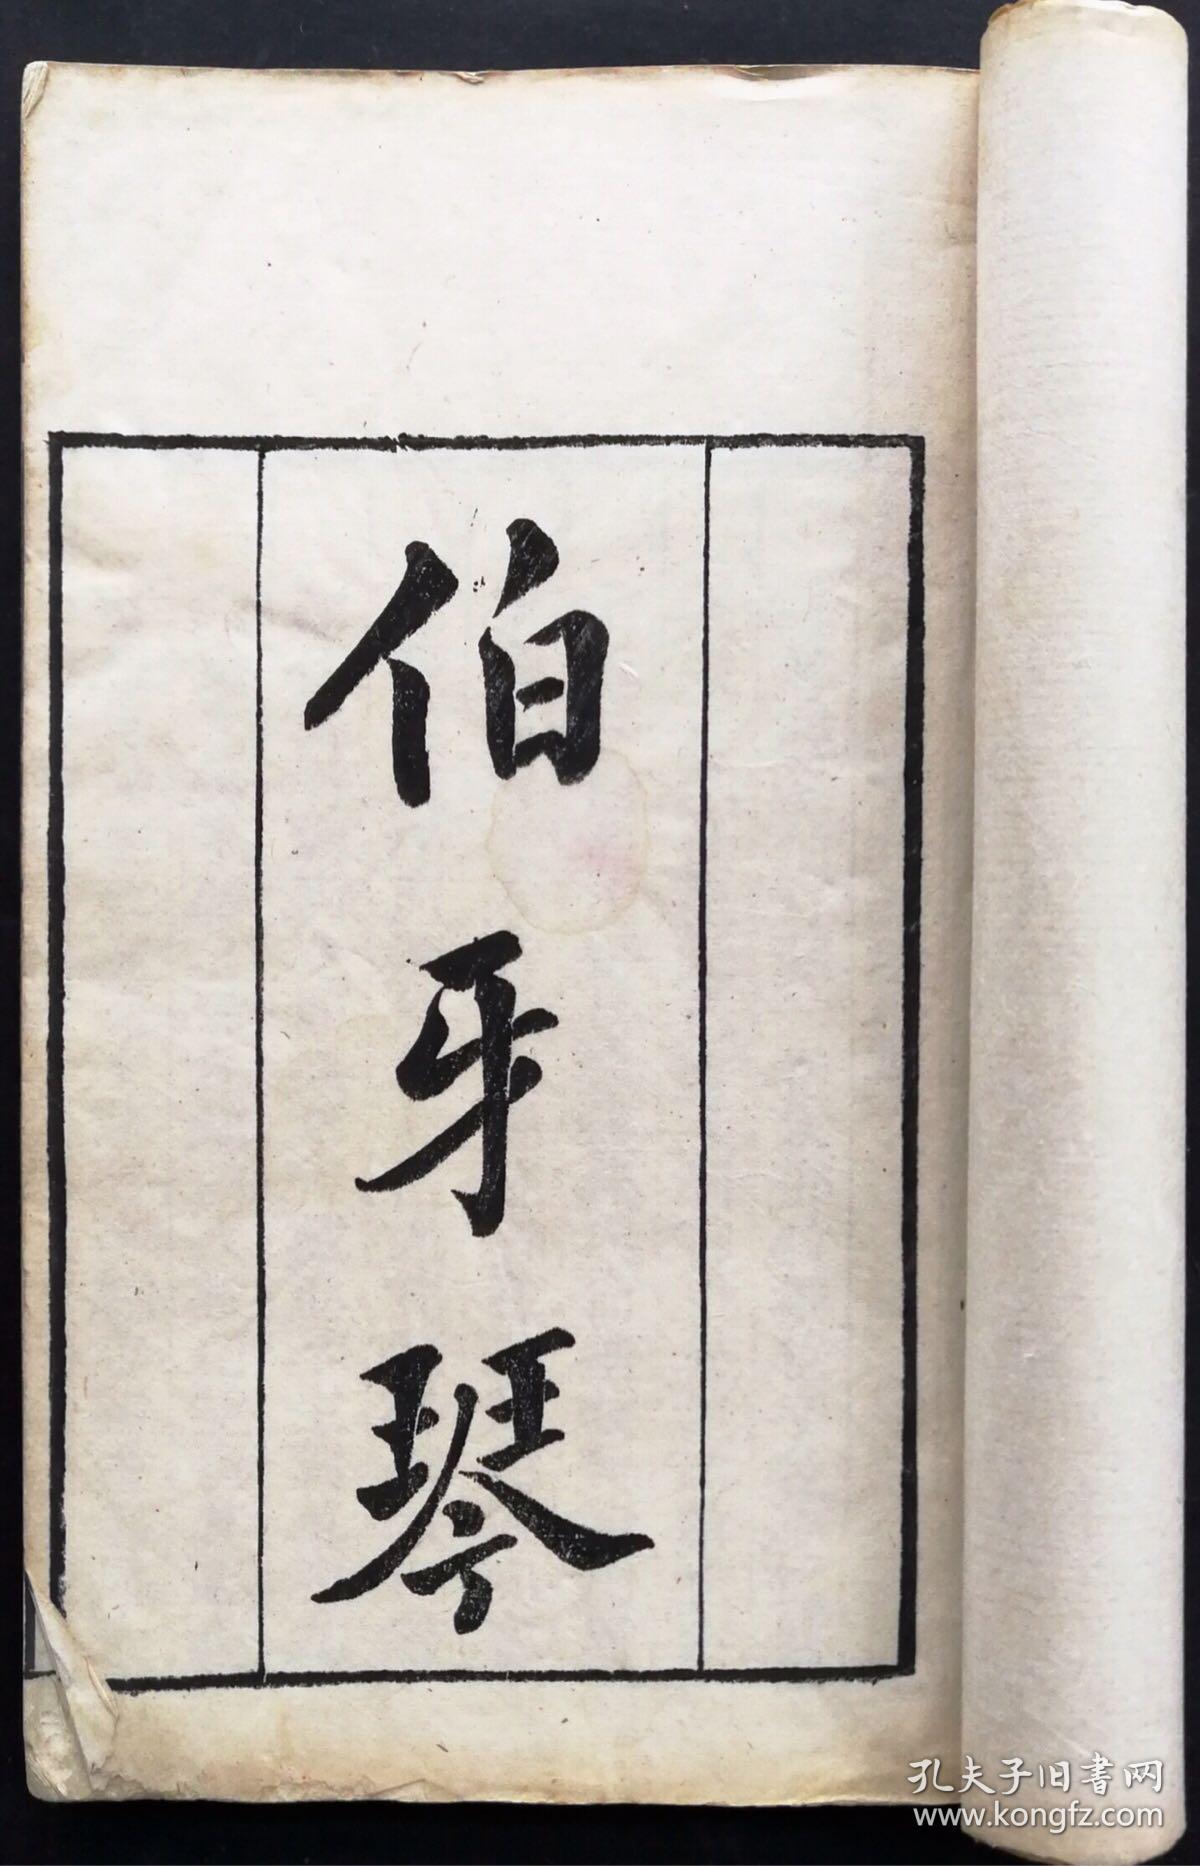 伯牙琴
孔夫子旧書网
www.kongfz.com